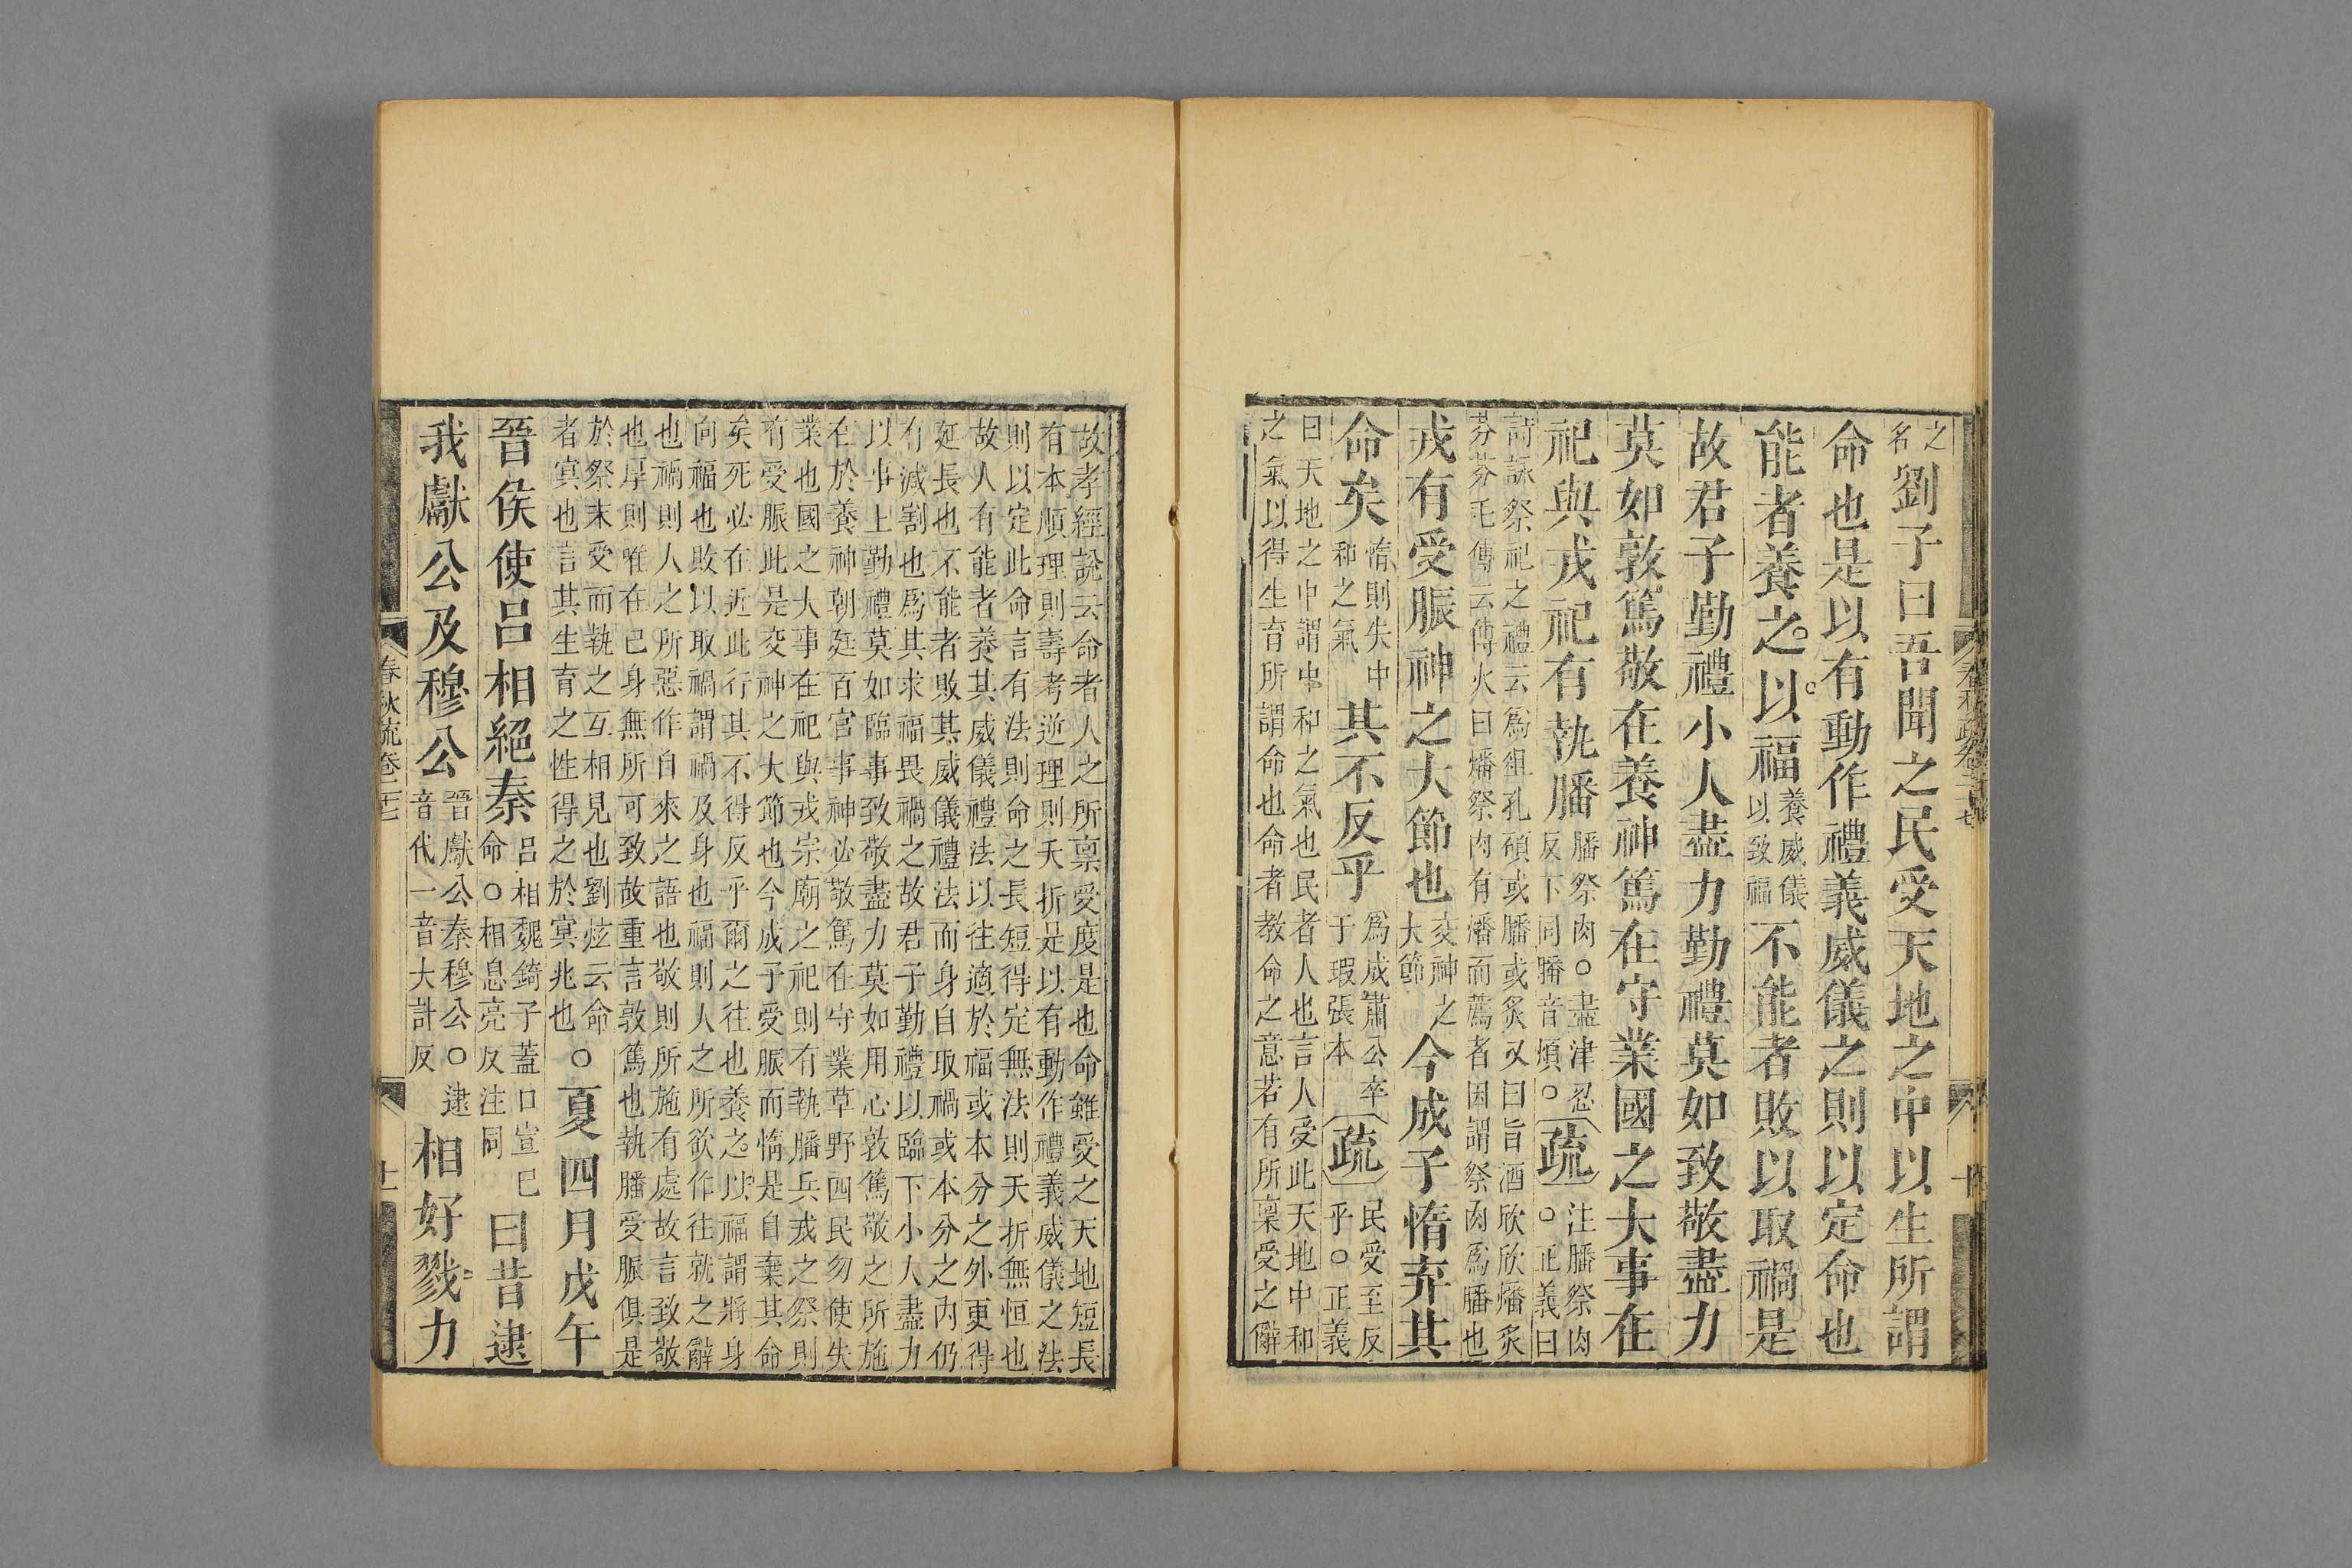 之名劉子曰吾聞之民受天地之中以生所謂
命也是以有動作禮義威儀之則以定命也
能者養之以福養威儀以致福不能者敗以取禍是
故君子勤禮小人盡力勤禮莫如致敬盡力
莫如敦篤敬在養神篤在守業國之大事在
祀與戎祀有執膰膰祭肉○盡津忍反下同膰音煩○疏注膰祭肉○正義曰
詩詠祭祀之禮云爲俎孔碩或膰或炙又曰旨酒欣欣燔炙
芬芬毛傳云傅火曰燔祭肉有燔而薦者因謂祭肉爲膰也
戎有受脤神之大節也交神之大節今成子惰弃其
命矣惰則失中和之氣其不反乎爲成肅公卒于瑕張本疏民受至反乎○正義
曰天地之中謂中和之氣也民者人也言人受此天地中和
之氣以得生育所謂命也命者教命之意若有所稟受之辭
春秋疏卷二十七
十
故孝經說云命者人之所稟受度是也命雖受之天地短長
有本順理則壽考逆理則夭折是以有動作禮義威儀之法
則以定此命言有法則命之長短得定無法則夭折無恒也
故人有能者養其威儀禮法以往適於福或本分之外更得
延長也不能者敗其威儀禮法而身自取禍或本分之內仍
有減割也爲其求福畏禍之故君子勤禮以臨下小人盡力
以事上勤禮莫如臨事致敬盡力莫如用心敦篤敬之所施
在於養神朝庭百官事神必敬篤在守業草野四民勿使失
業也國之大事在祀與戎宗廟之祀則有執膰兵戎之祭則
有受脤此是交神之大節也今成子受脤而惰是自棄其命
矣死必在近此行其不得反乎爾之往也養之以福謂將身
向福也敗以取禍謂禍及身也福則人之所欲作往就之辭
也禍則人之所惡作自來之語也敬則所施有處故言致敬
也厚則唯在己身無所可致故重言敦篤也執膰受脤俱是
於祭末受而執之互相見也劉炫云命
者冥也言其生育之性得之於冥兆也○夏四月戊午
晉侯使呂相絕秦呂相魏錡子蓋口宣己命○相息亮反注同曰昔逮
我獻公及穆公晉獻公秦穆公○逮音代一音大計反相好戮力
春秋疏卷二十七
十一